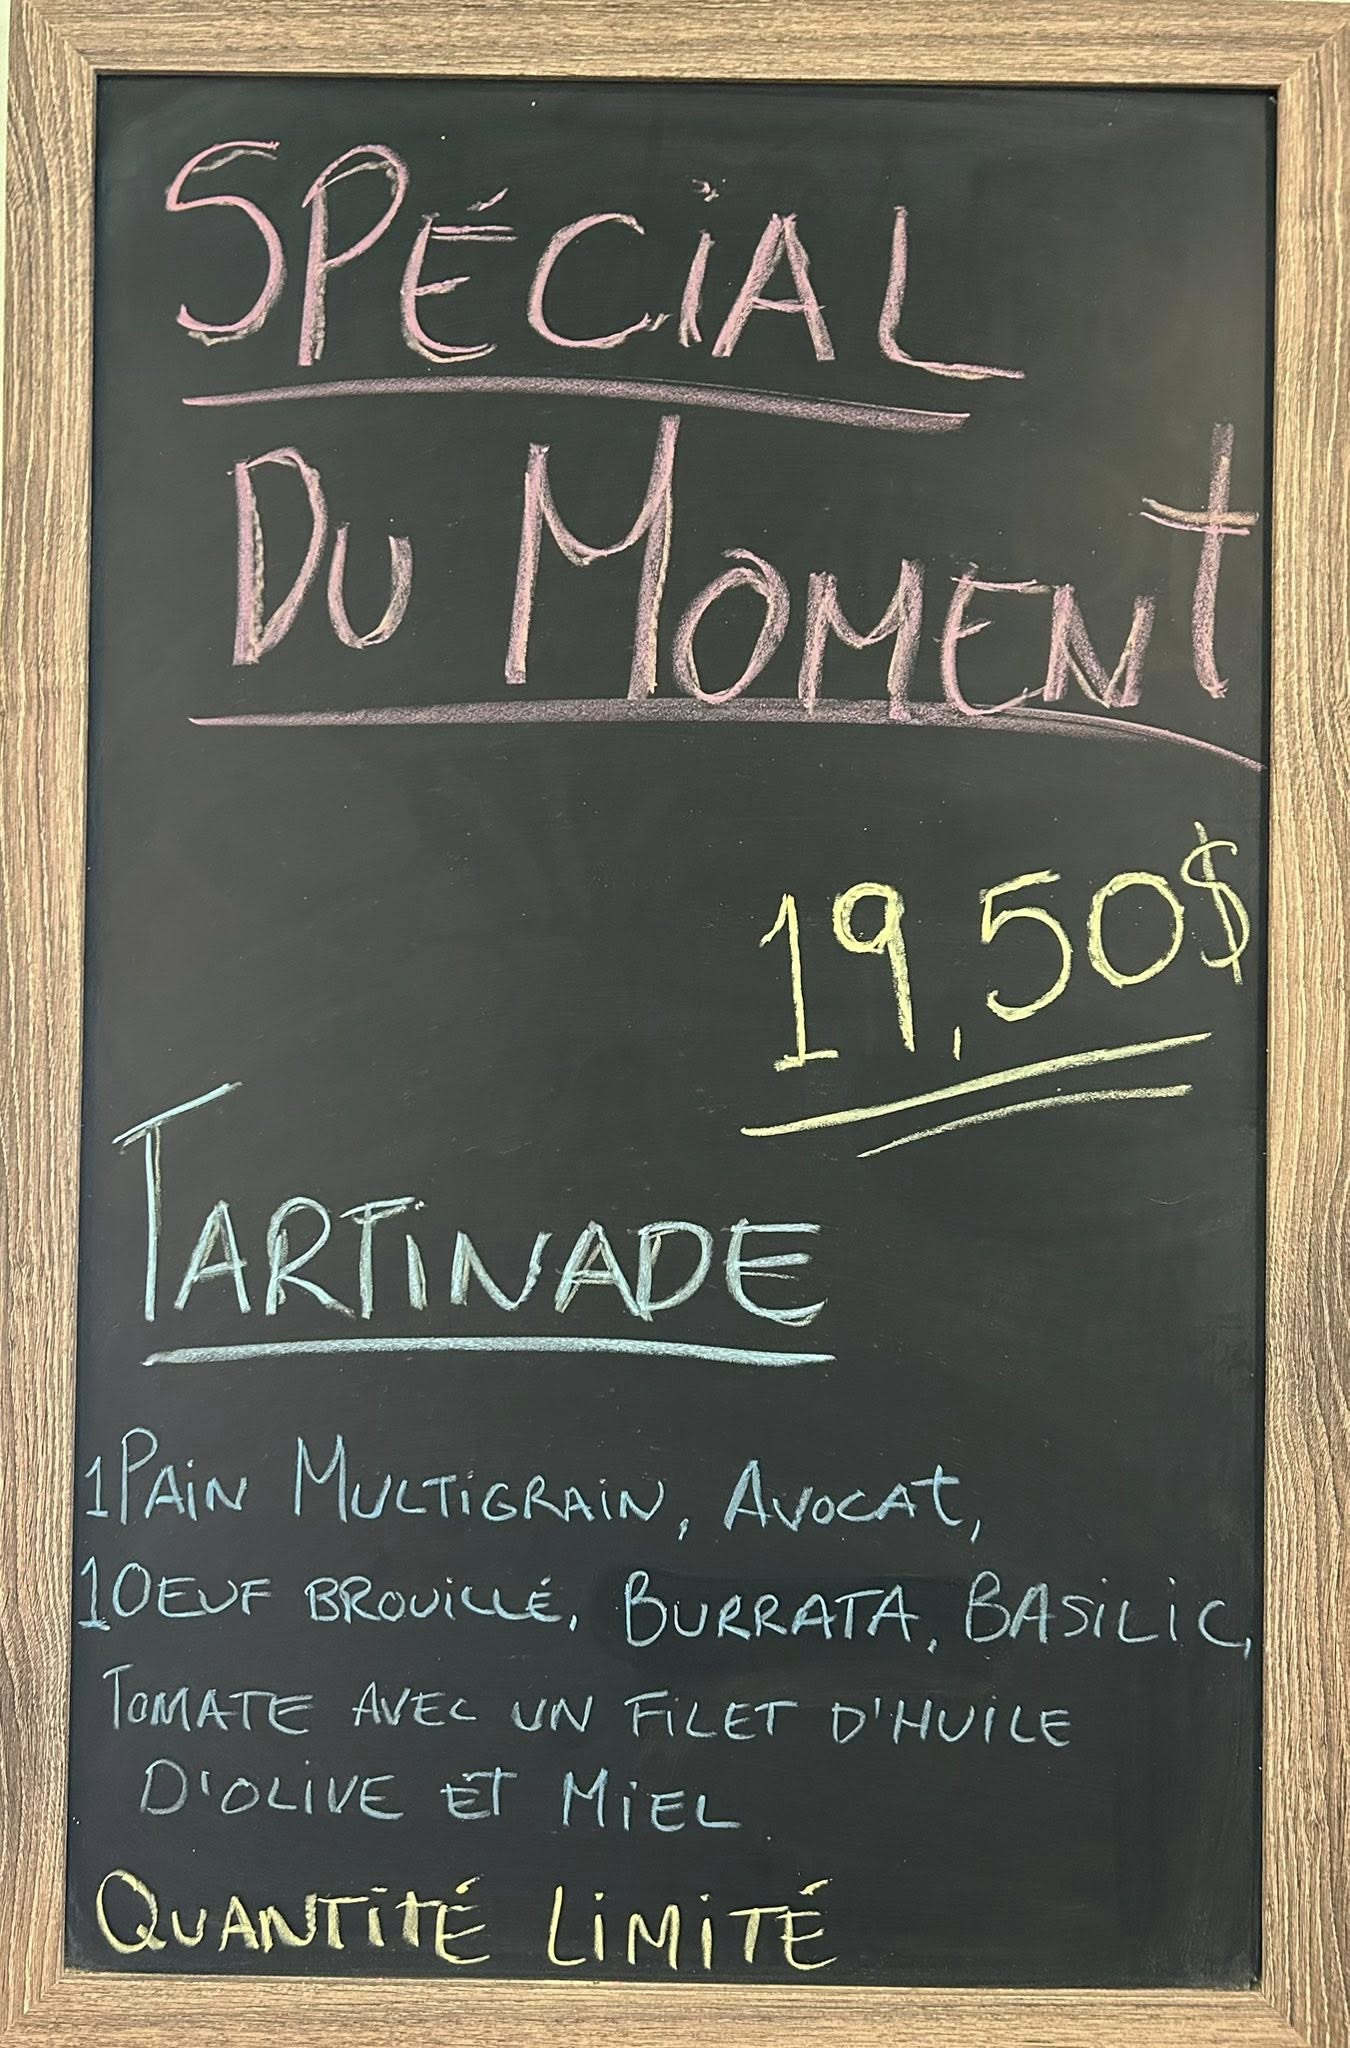 SPÉCIAL
DU MOMENt
19,50$
TARTINADE
1 PAIN MULTIGRAIN, AVOCAt,
1 OEUF BROUILLÉ, BURRATA, BASILIC,
TOMATE AVEC UN FILET D'HUILE
D'OLIVE ET MIEL
QUANTITÉ LIMITÉ